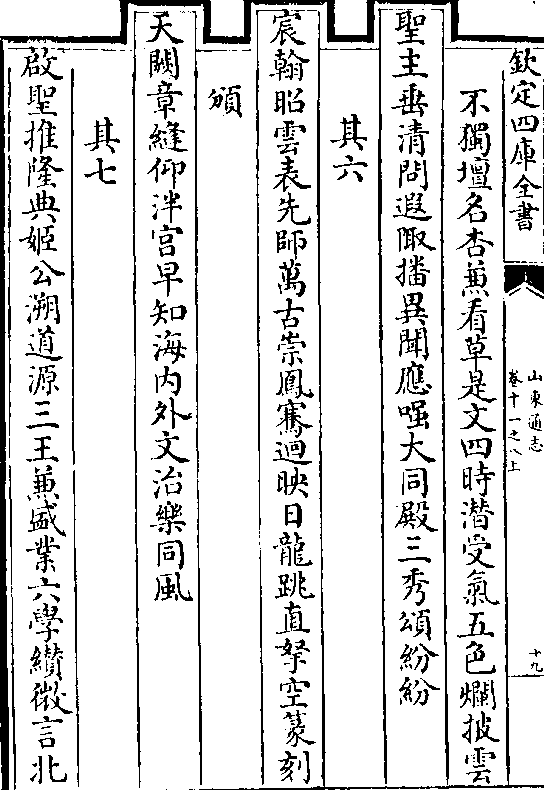 欽定四庫全書
山東通志
卷十一之八上
十九
不獨壇名杏兼看草是文四時潛受氣五色爛披雲
聖主垂清問遐陬播異聞應嗤大同殿三秀頌紛紛
其六
宸翰昭雲表先師萬古崇鳳騫迴映日龍跳直拏空篆刻
頒
天闕章縫仰泮宮早知海內外文治樂同風
其七
啟聖推隆典姬公溯道源三王兼盛業六學纘微言北